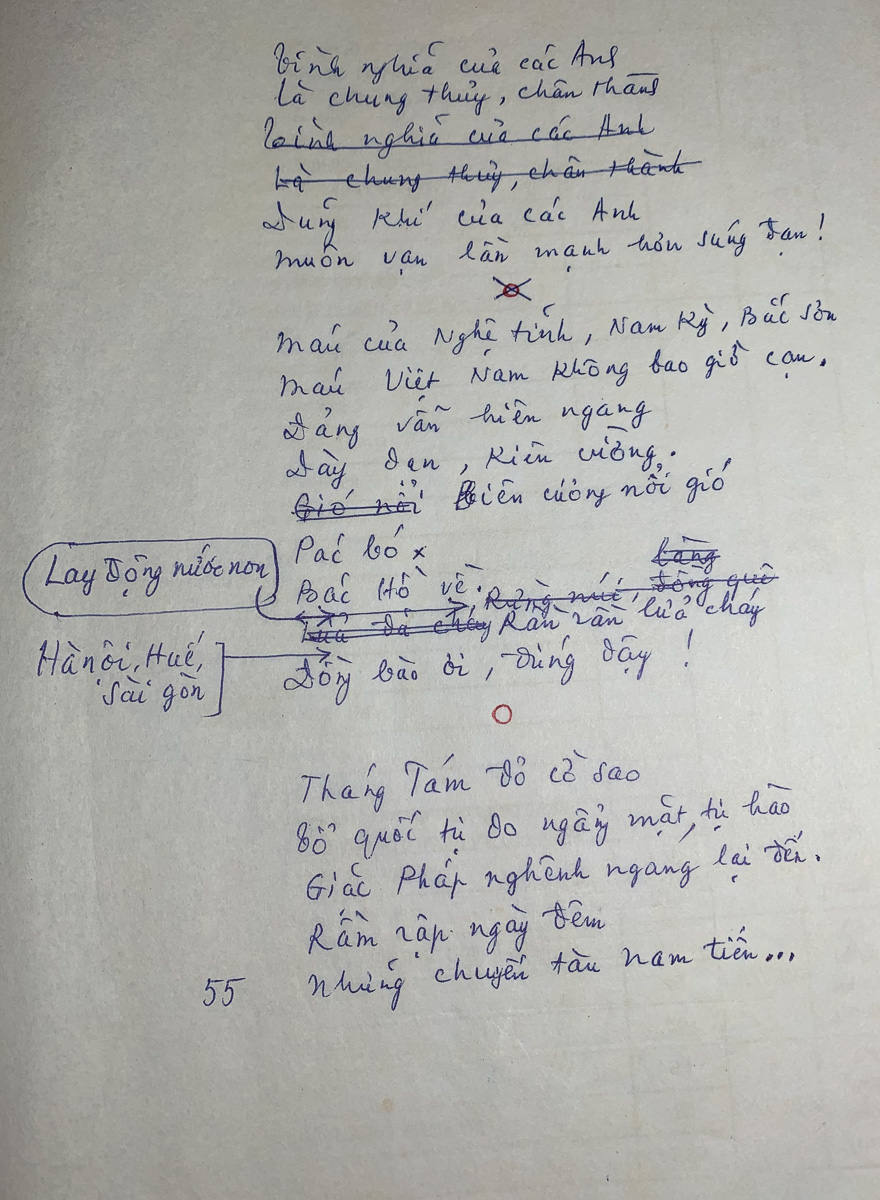 Tình nghĩa của các Anh
là chung thủy, chân thành
Tình nghĩa của các Anh
Là chung thủy, chân thành
Dũng khí của các Anh
muôn vạn lần mạnh hơn súng đạn!
Máu của Nghệ tĩnh, Nam Kỳ, Bắc Sơn
Máu Việt Nam không bao giờ cạn.
Đảng vẫn hiên ngang
Dày dạn, kiên cường.
Gió nổi Biên cương nổi gió
Pác bó x
làng
Bác Hồ về, Rừng núi, đồng quê
Lay động nước non
Lửa đã cháy Rần rần lửa cháy
Hà nội, Huế,
Sài gòn
Đồng bào ơi, đứng dậy!
Tháng Tám đỏ cờ sao
Tổ quốc tự do ngẩng mặt, tự hào
Giặc Pháp nghênh ngang lại đến.
Rầm rập ngày đêm
Những chuyến tàu nam tiến...
55